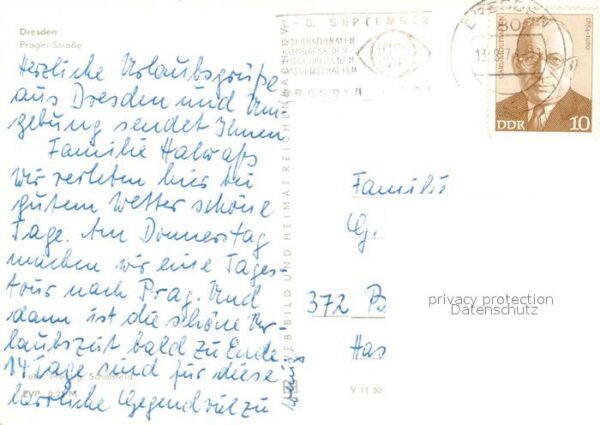 Dresden
Prager Straße
Herzliche Urlaubsgrüße
aus Dresden und Um-
gebung sendet Ihnen
Familie
Wir verleben hier bei
gutem Wetter schöne
Tage. Am Donnerstag
machen wir eine Tages-
tour nach Prag. Und
dann ist die schöne Ur-
laubszeit bald zu Ende
14 Tage sind für diese
herrliche Gegend viel zu
Foto: Schönfeld
EVP
BILD UND HEIMAT REICHENBACH
V 11 50
SEPTEMBER
INTERNATIONALER
KONGRESS DER
WISSENSCHAFTEN
DRESDEN
DRESDEN
DDR 10
Familie
G.
372
Has
privacy protection
Datenschutz